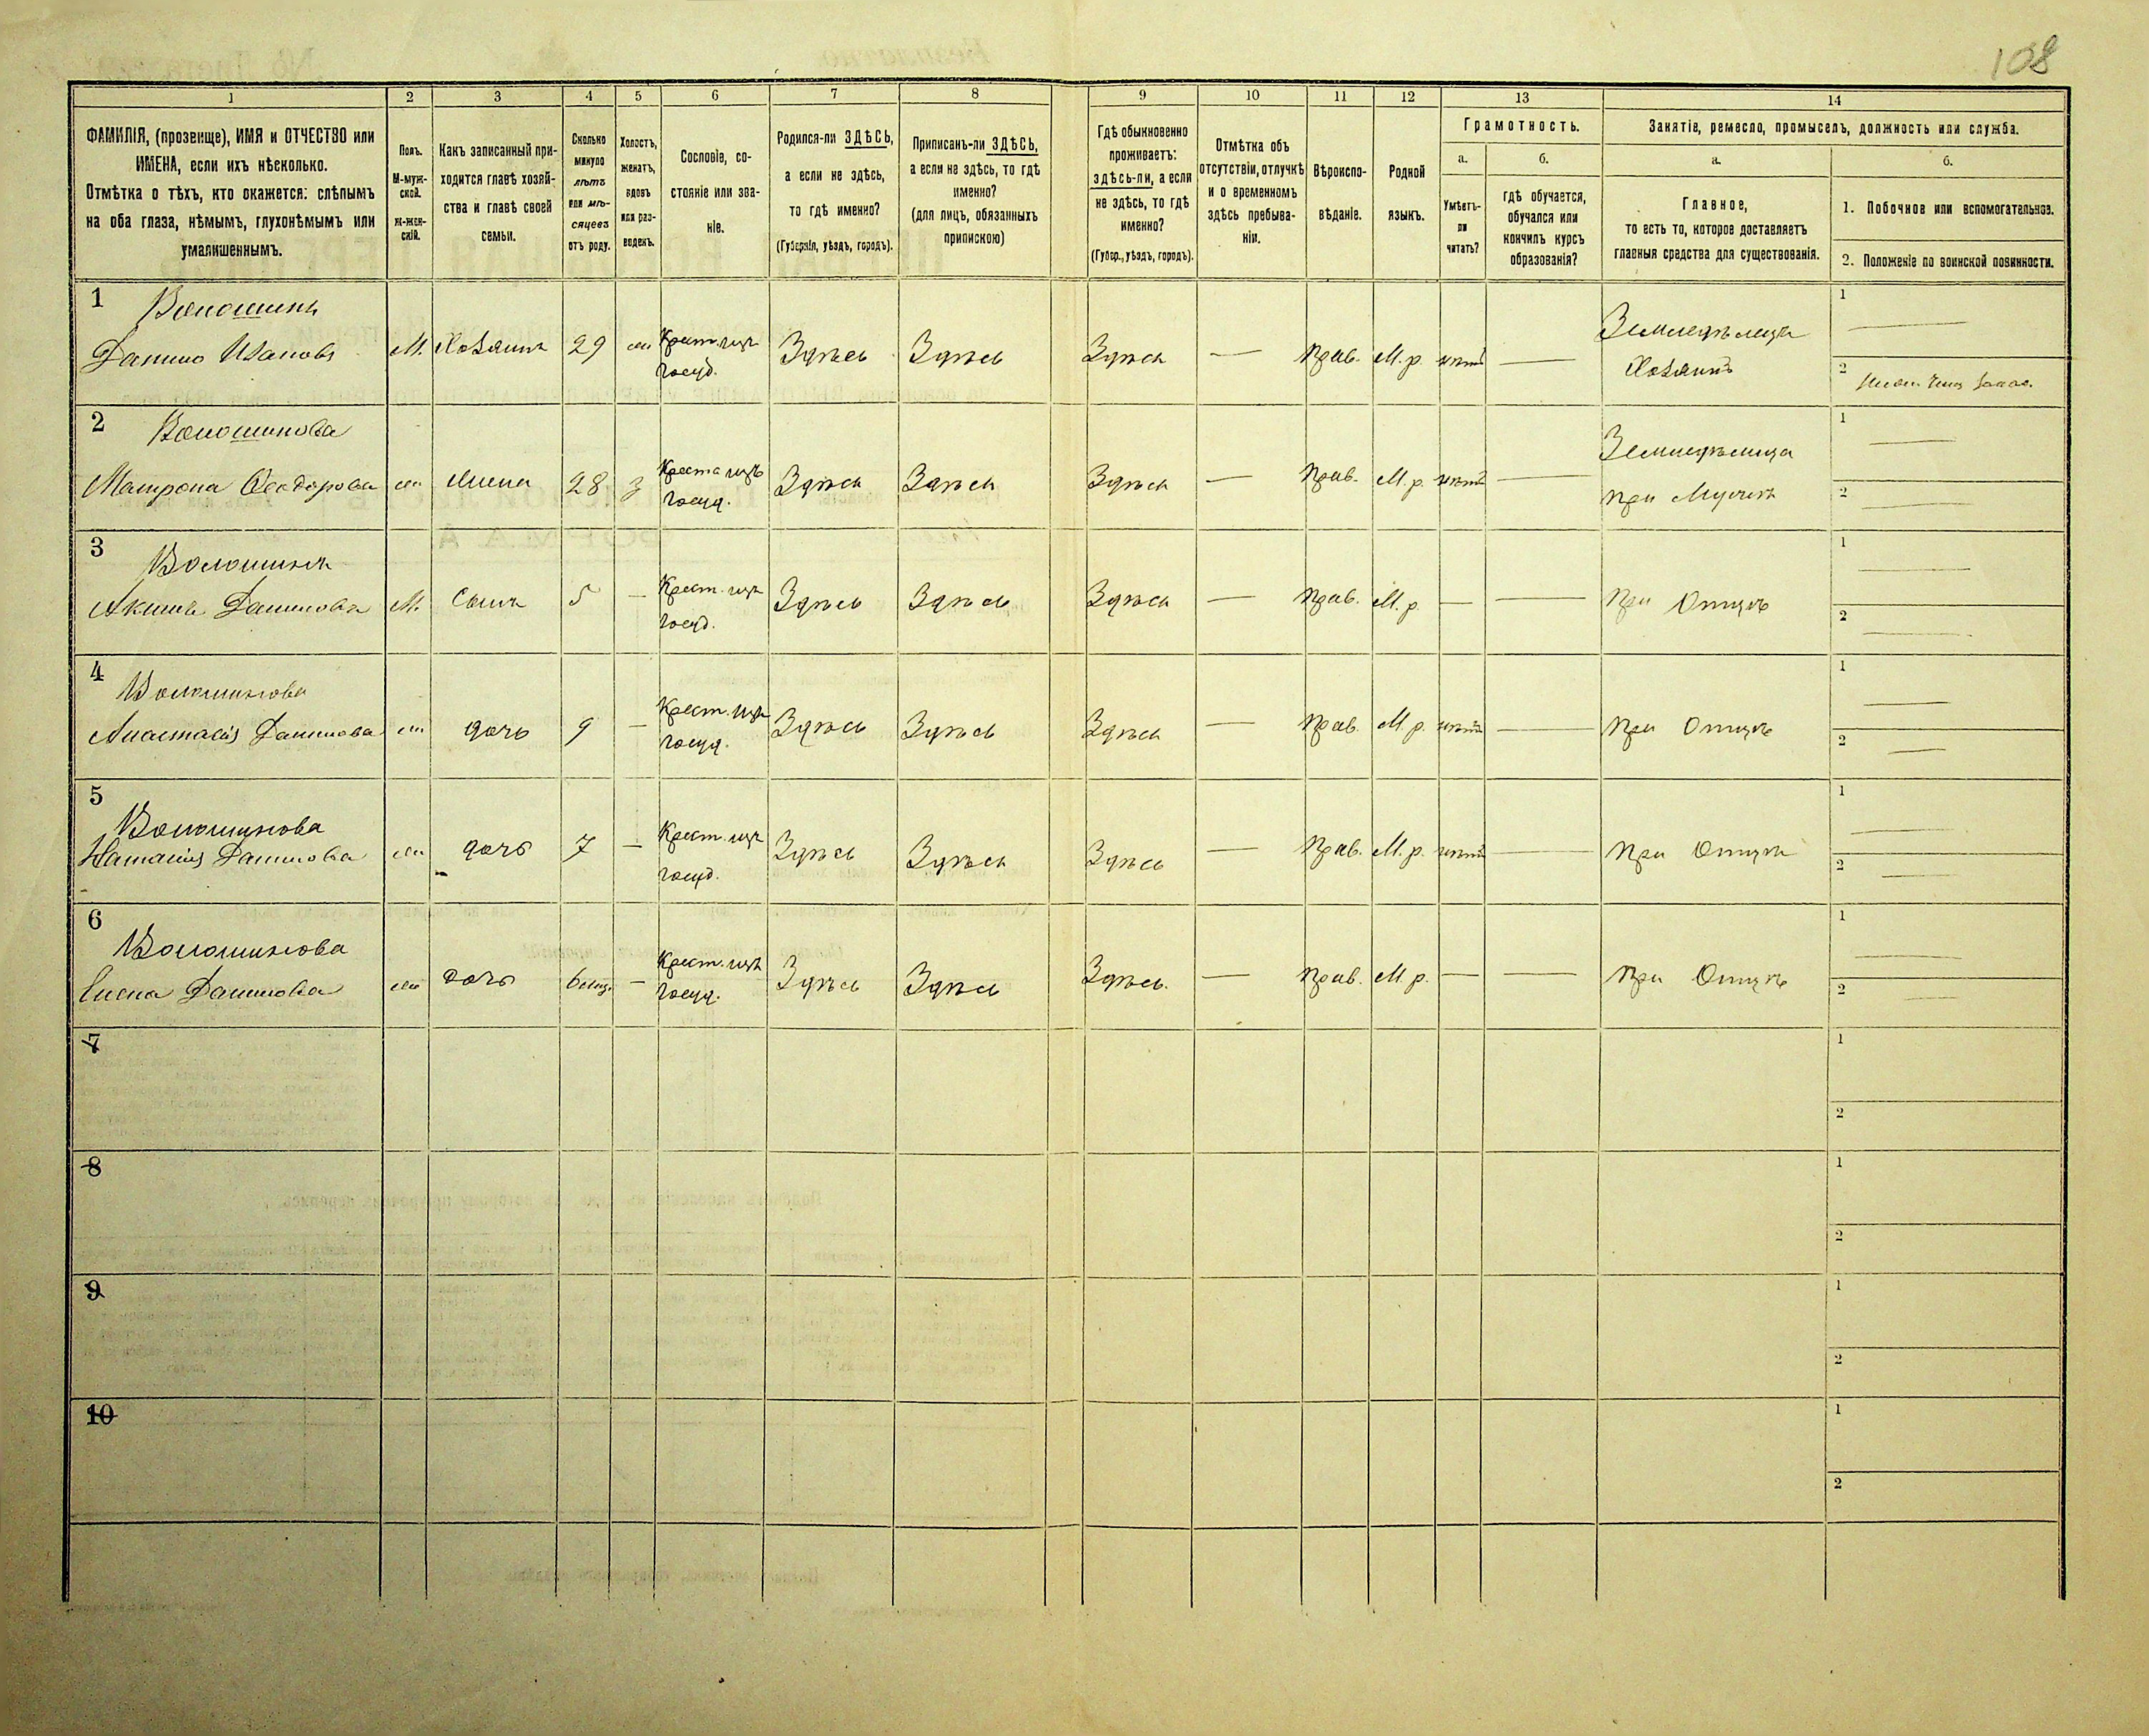 108
1 2 3 4 5 6 7 8 9 10 11 12 13 14
ФАМИЛІЯ, (прозвище), ИМЯ и ОТЧЕСТВО или
ИМЕНА, если ихъ нѣсколько.
Отмѣтка о тѣхъ, кто окажется: слѣпымъ
на оба глаза, нѣмымъ, глухонѣмымъ или
умалишеннымъ.
Полъ.
М-муж-
ской.
ж-жен-
скій.
Какъ записанный при-
ходится главѣ хозяй-
ства и главѣ своей
семьи.
Сколько
минуло
лѣтъ
или мѣ-
сяцевъ
отъ роду.
Холостъ,
женатъ,
вдовъ
или раз-
веденъ.
Сословіе, со-
стояніе или зва-
ніе.
Родился-ли ЗДѢСЬ,
а если не здѣсь,
то гдѣ именно?
(Губернія, уѣздъ, городъ).
Приписанъ-ли ЗДѢСЬ,
а если не здѣсь, то гдѣ
именно?
(для лицъ, обязанныхъ
припискою)
Гдѣ обыкновенно
проживаетъ:
здѣсь-ли, а если
не здѣсь, то гдѣ
именно?
(Губер., уѣздъ, городъ).
Отмѣтка объ
отсутствіи, отлучкѣ
и о временномъ
здѣсь пребыва-
ніи.
Вѣроиспо-
вѣданіе.
Родной
языкъ.
Грамотность.
а.
Умѣетъ-
ли
читать?
б.
гдѣ обучается,
обучался или
кончилъ курсъ
образованія?
Занятіе, ремесло, промыселъ, должность или служба.
а.
Главное,
то есть то, которое доставляетъ
главныя средства для существованія.
б.
1. Побочное или вспомогательное.
2. Положеніе по воинской повинности.
1 Волошинъ
Данило Ивановъ М. Хозяинъ 29 ж Крест. изъ
госуд. Здѣсь Здѣсь Здѣсь — Прав. М. р. нѣтъ —
Земледѣлецъ
Хозяинъ
1 —
2
2 Волошинова
Матрона Ѳеодорова ж Жена 28 з Крест. изъ
госуд. Здѣсь Здѣсь Здѣсь — Прав. М. р. нѣтъ —
Земледѣлица
при Мужѣ
1 —
2 —
3 Волошинъ
Акимъ Даниловъ М. Сынъ 5 — Крест. изъ
госуд. Здѣсь Здѣсь Здѣсь — Прав. М. р. — — При Отцѣ
1 —
2 —
4 Волошинова
Анастасія Данилова ж дочь 9 — Крест. изъ
госуд. Здѣсь Здѣсь Здѣсь — Прав. М. р. нѣтъ — при Отцѣ
1 —
2 —
5 Волошинова
Наталія Данилова ж дочь 7 — Крест. изъ
госуд. Здѣсь Здѣсь Здѣсь — Прав. М. р. нѣтъ — при Отцѣ
1 —
2 —
6 Волошинова
Елена Данилова ж дочь 6 мѣц. — Крест. изъ
госуд. Здѣсь Здѣсь Здѣсь. — Прав. М. р. — — При Отцѣ
1 —
2 —
7
1
2
8
1
2
9
1
2
10
1
2